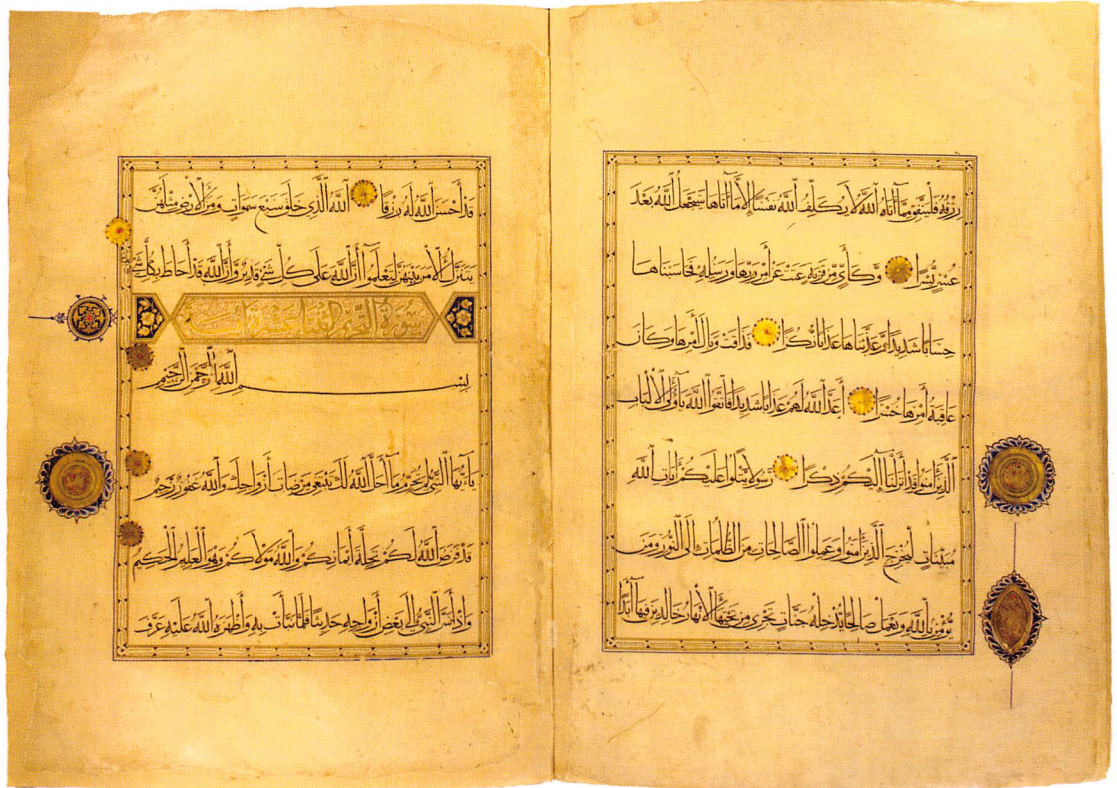 رِزْقُهُ فَلْيُنفِقْ مِمَّا آتَاهُ ٱللَّهُ لَا يُكَلِّفُ ٱللَّهُ نَفْسًا إِلَّا مَا آتَاهَا سَيَجْعَلُ ٱللَّهُ بَعْدَ
عُسْرٍ يُسْرًا وَكَأَيِّ مِّن قَرْيَةٍ عَتَتْ عَنْ أَمْرِ رَبِّهَا وَرُسُلِهِ فَحَاسَبْنَاهَا
حِسَابًا شَدِيدًا وَعَذَّبْنَاهَا عَذَابًا نُّكْرًا فَذَاقَتْ وَبَالَ أَمْرِهَا وَكَانَ
عَاقِبَةُ أَمْرِهَا خُسْرًا أَعَدَّ ٱللَّهُ لَهُمْ عَذَابًا شَدِيدًا فَٱتَّقُوا ٱللَّهَ يَا أُولِي ٱلْأَلْبَابِ
ٱلَّذِينَ آمَنُوا قَدْ أَنزَلَ ٱللَّهُ إِلَيْكُمْ ذِكْرًا رَّسُولًا يَتْلُوا عَلَيْكُمْ آيَاتِ ٱللَّهِ
مُبَيِّنَاتٍ لِّيُخْرِجَ ٱلَّذِينَ آمَنُوا وَعَمِلُوا ٱلصَّالِحَاتِ مِنَ ٱلظُّلُمَاتِ إِلَى ٱلنُّورِ وَمَن
يُؤْمِن بِٱللَّهِ وَيَعْمَلْ صَالِحًا يُدْخِلْهُ جَنَّاتٍ تَجْرِي مِن تَحْتِهَا ٱلْأَنْهَارُ خَالِدِينَ فِيهَا أَبَدًا
قَدْ أَحْسَنَ ٱللَّهُ لَهُ رِزْقًا ٱللَّهُ ٱلَّذِي خَلَقَ سَبْعَ سَمَوَاتٍ وَمِنَ ٱلْأَرْضِ مِثْلَهُنَّ
يَتَنَزَّلُ ٱلْأَمْرُ بَيْنَهُنَّ لِتَعْلَمُوا أَنَّ ٱللَّهَ عَلَى كُلِّ شَيْءٍ قَدِيرٌ وَأَنَّ ٱللَّهَ قَدْ أَحَاطَ بِكُلِّ شَيْءٍ
سورة التحريم
بِسْمِ ٱللَّهِ ٱلرَّحْمَنِ ٱلرَّحِيمِ
يَا أَيُّهَا ٱلنَّبِيُّ لِمَ تُحَرِّمُ مَا أَحَلَّ ٱللَّهُ لَكَ تَبْتَغِي مَرْضَاتَ أَزْوَاجِكَ وَٱللَّهُ غَفُورٌ رَحِيمٌ
قَدْ فَرَضَ ٱللَّهُ لَكُمْ تَحِلَّةَ أَيْمَانِكُمْ وَٱللَّهُ مَوْلَاكُمْ وَهُوَ ٱلْعَلِيمُ ٱلْحَكِيمُ
وَإِذْ أَسَرَّ ٱلنَّبِيُّ إِلَى بَعْضِ أَزْوَاجِهِ حَدِيثًا فَلَمَّا نَبَّأَتْ بِهِ وَأَظْهَرَهُ ٱللَّهُ عَلَيْهِ عَرَّفَ